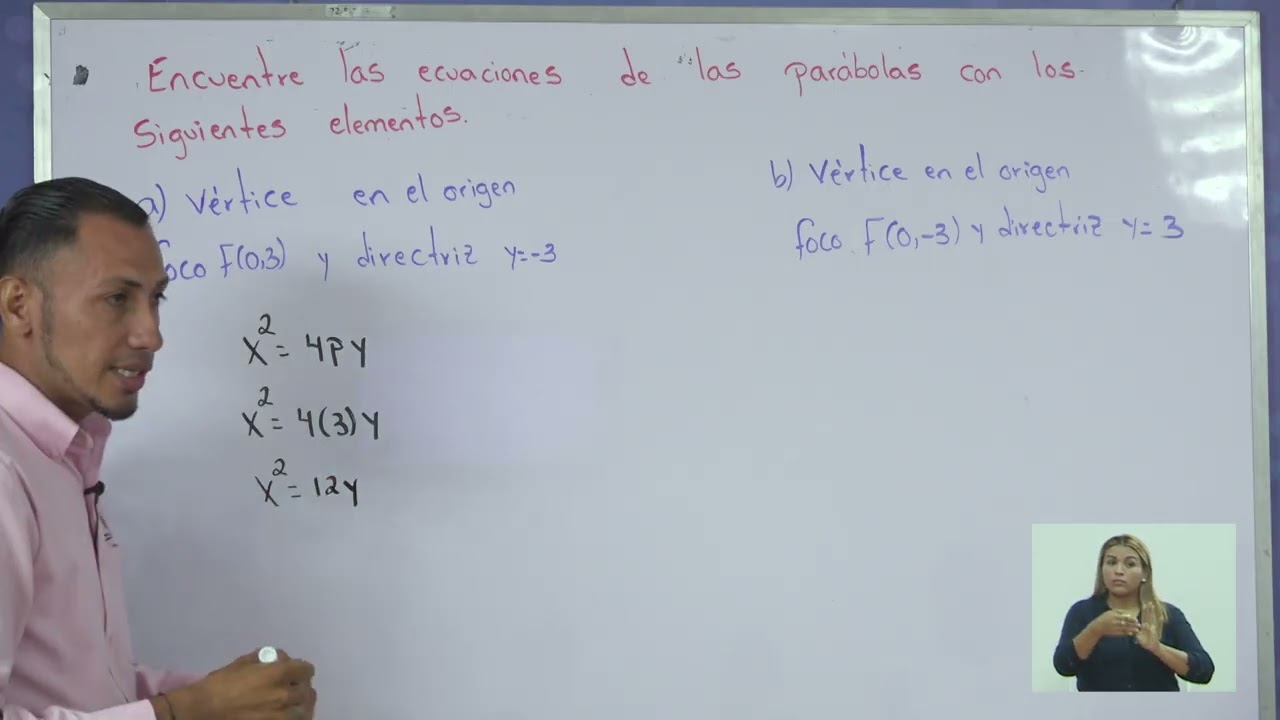 Encuentre las ecuaciones de las parábolas con los
Siguientes elementos.
a) Vértice en el origen
foco F(0,3) y directriz y=-3
x²= 4py
x²= 4(3)y
x²= 12y
b) Vértice en el origen
foco F(0,-3) y directriz y= 3